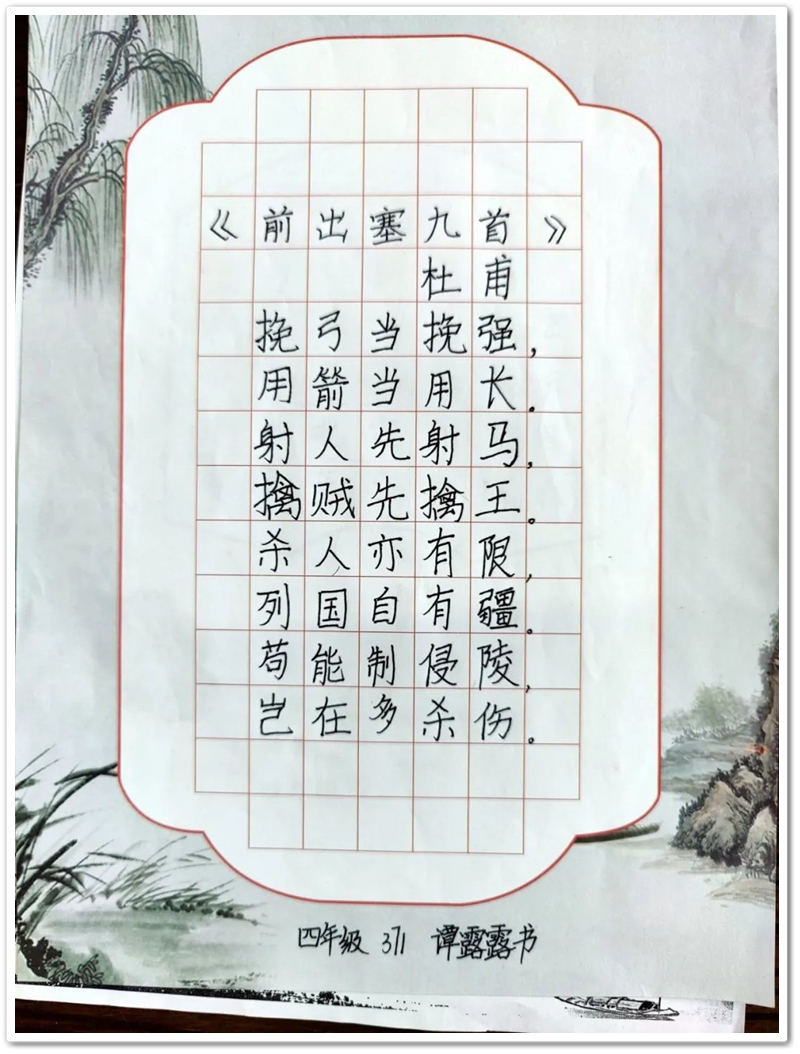 《前出塞九首》
杜甫
挽弓当挽强，
用箭当用长。
射人先射马，
擒贼先擒王。
杀人亦有限，
列国自有疆。
苟能制侵陵，
岂在多杀伤。
四年级 371 谭露露书